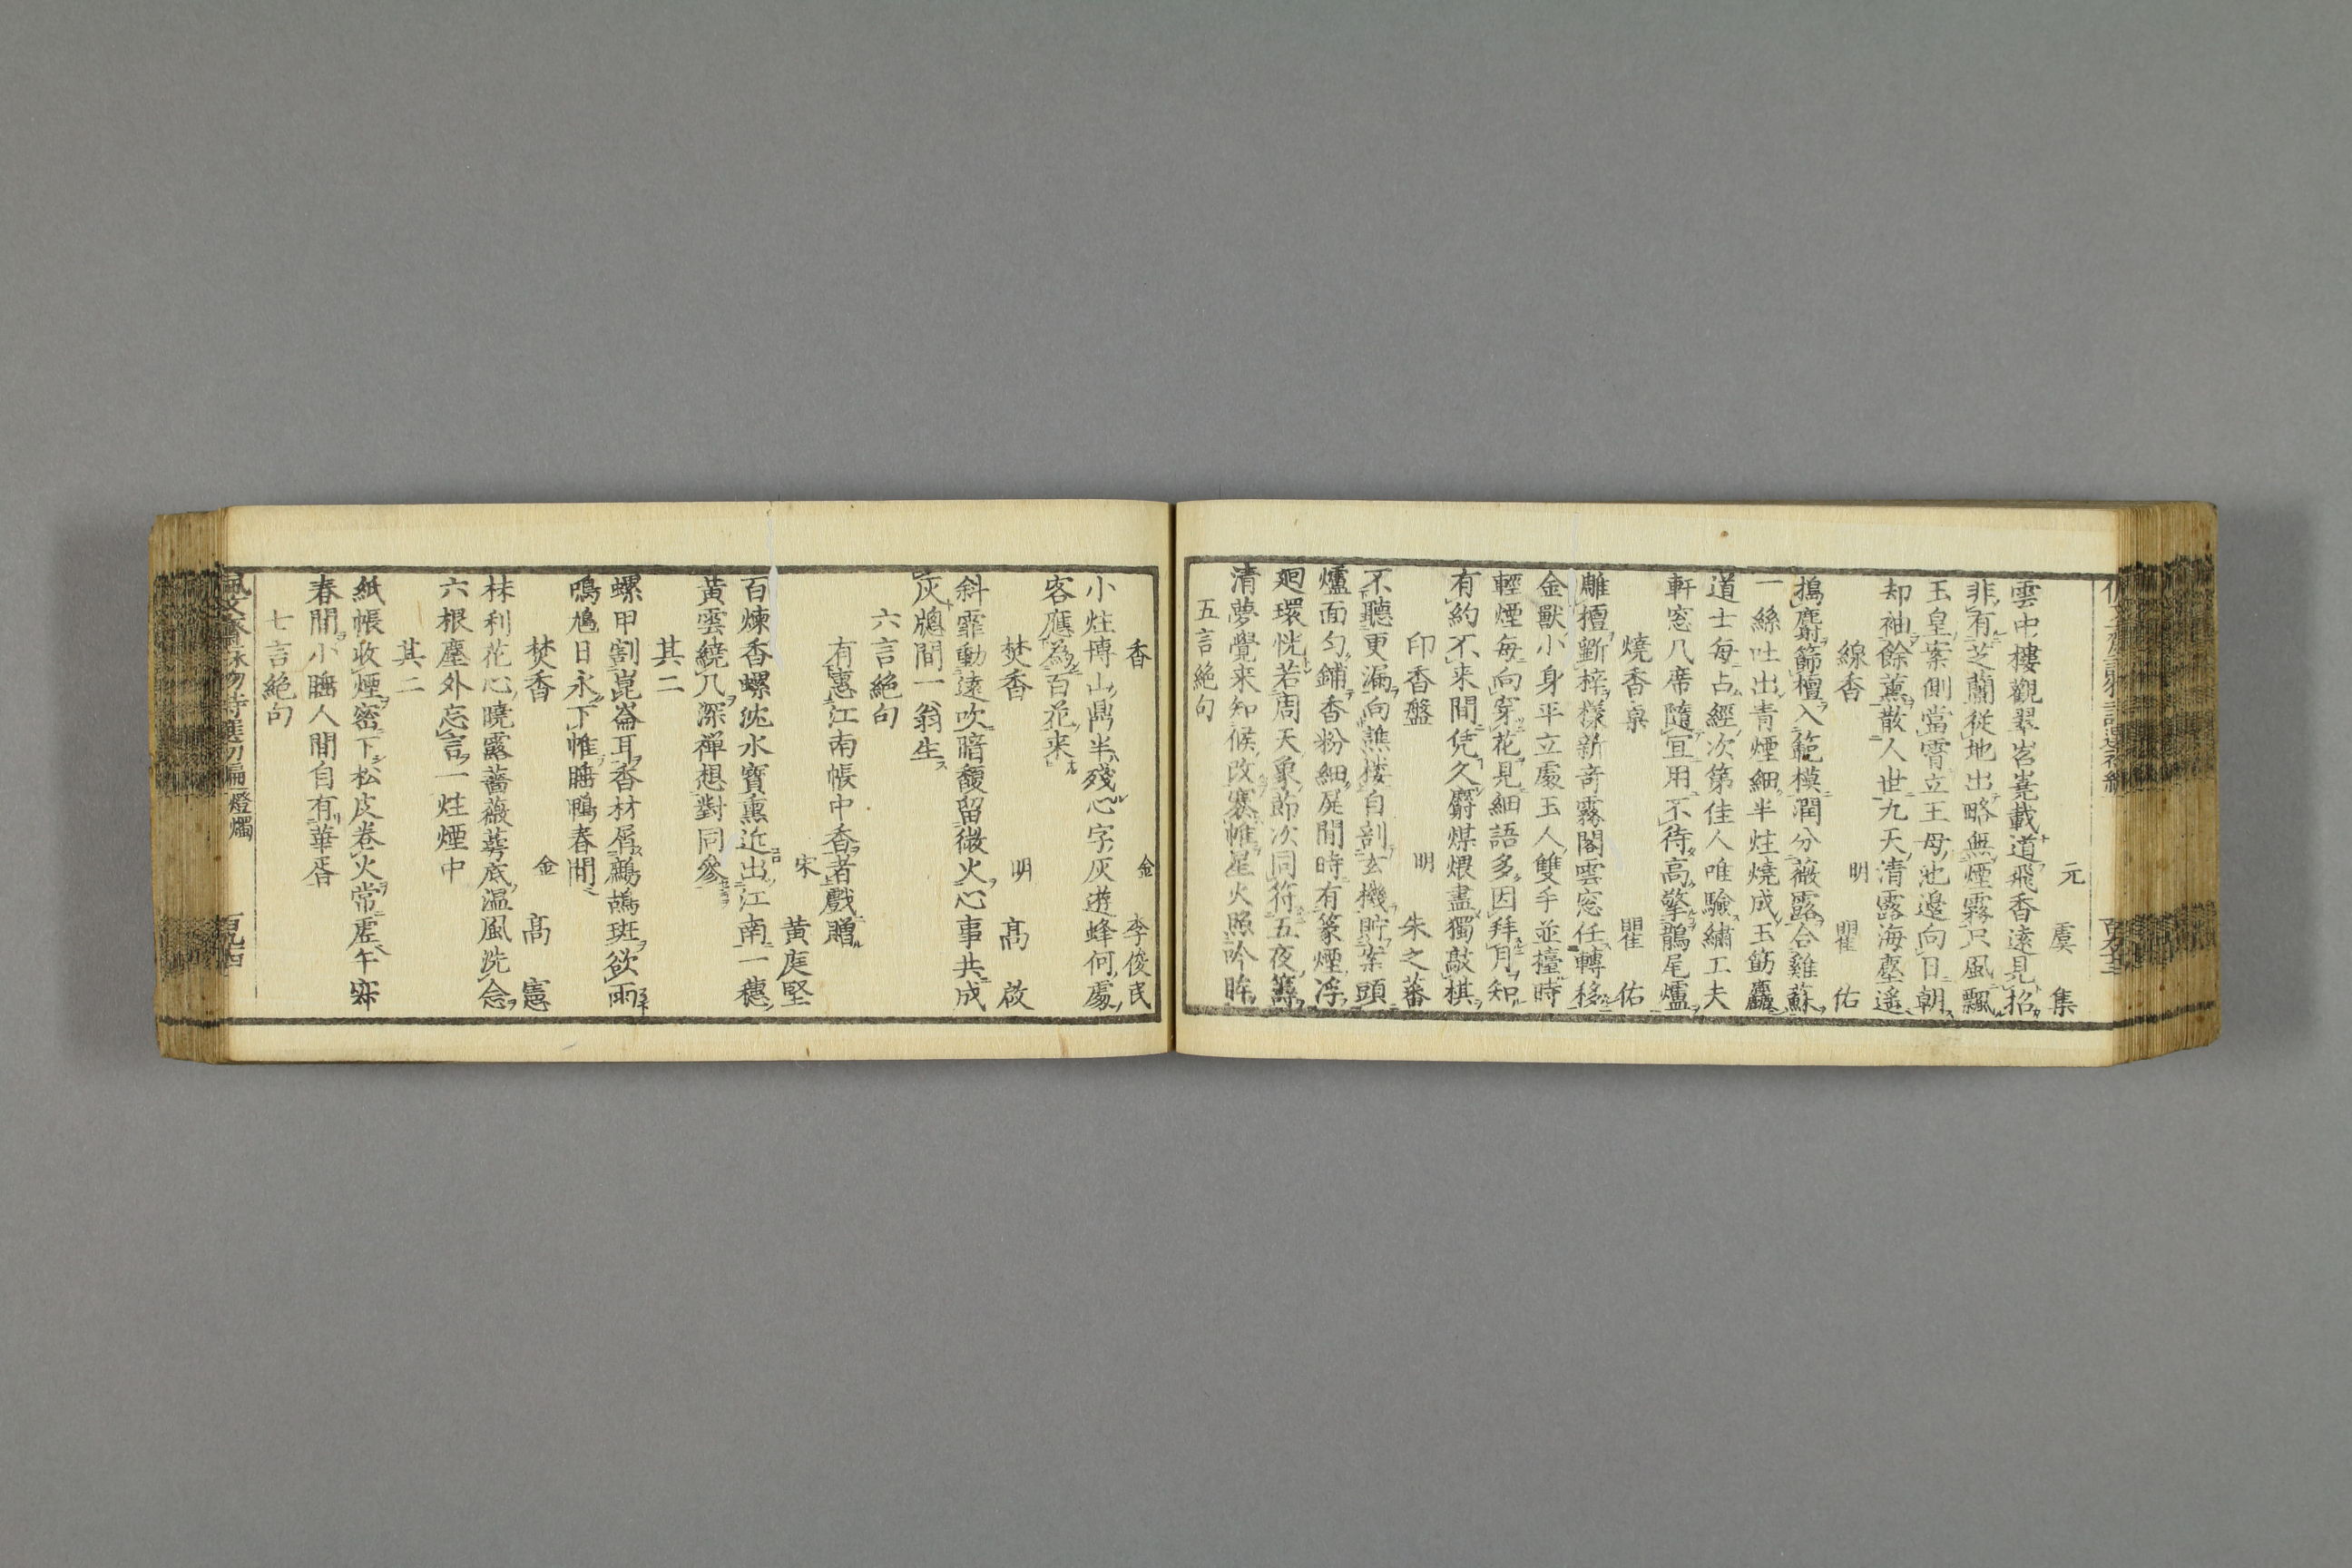 元 虞 集
雲中樓觀翠岧嶤載道飛香遠見招
非有芝蘭從地出略無煙霧只風飄
玉皇案側當霄立王母池邊向日朝
却袖餘薫散人世九天清露海塵遙
線香 明 瞿 佑
搗麝篩檀入範模潤分薇露合雞蘇
一絲吐出青煙細半炷燒成玉筯麤
道士每占經次第佳人唯驗繡工夫
軒窓几席隨宜用不待高擎鵲尾爐
燒香桌 瞿 佑
雕檀斵梓樣新奇霧閣雲窓任轉移
金獸小身平立處玉人雙手並擡時
輕煙每向穿花見細語多因拜月知
有約不来閒凭久麝煤煨盡獨敲棋
印香盤 明 朱之蕃
不聽更漏向譙樓自剖玄機貯案頭
爐面匀鋪香粉細屏閒時有篆煙浮
廻環恍若周天象節次同符五夜籌
清夢覺来知候改褰帷星火照吟眸
五言絶句
香 金 李俊民
小炷博山鼎半殘心字灰遊蜂何處
客應為百花来
焚香 明 髙 啟
斜霏動遠吹暗馥留微火心事共成
灰牕間一翁生
六言絶句
有惠江南帳中香者戲贈
宋 黄庭堅
百煉香螺沈水寶熏近出江南一穗
黃雲繞几深禅想對同參
其二
螺甲割崑崙耳香材屑鷓鴣斑欲雨
鳴鳩日永下帷睡鴨春閒
焚香 金 髙 憲
抹利花心曉露薔薇萼底温風洗念
六根塵外忘言一炷煙中
其二
紙帳收煙密下松皮卷火常虛午寐
春閒小睡人間自有華胥
七言絶句
燈燭